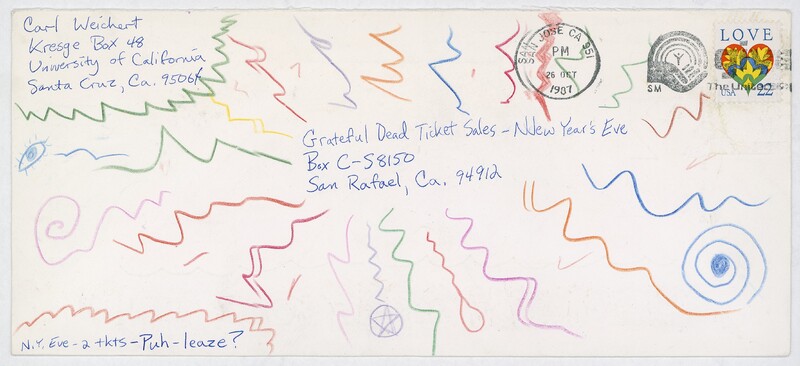 Carl Weichert
Kresge Box 48
University of California
Santa Cruz, Ca. 95064
SAN JOSE CA 951
PM
26 OCT
1987
SM
LOVE
The United
USA 22
Grateful Dead Ticket Sales - New Year's Eve
Box C-S8150
San Rafael, Ca. 94912
N.Y. Eve - 2 tkts - Puh-leaze?